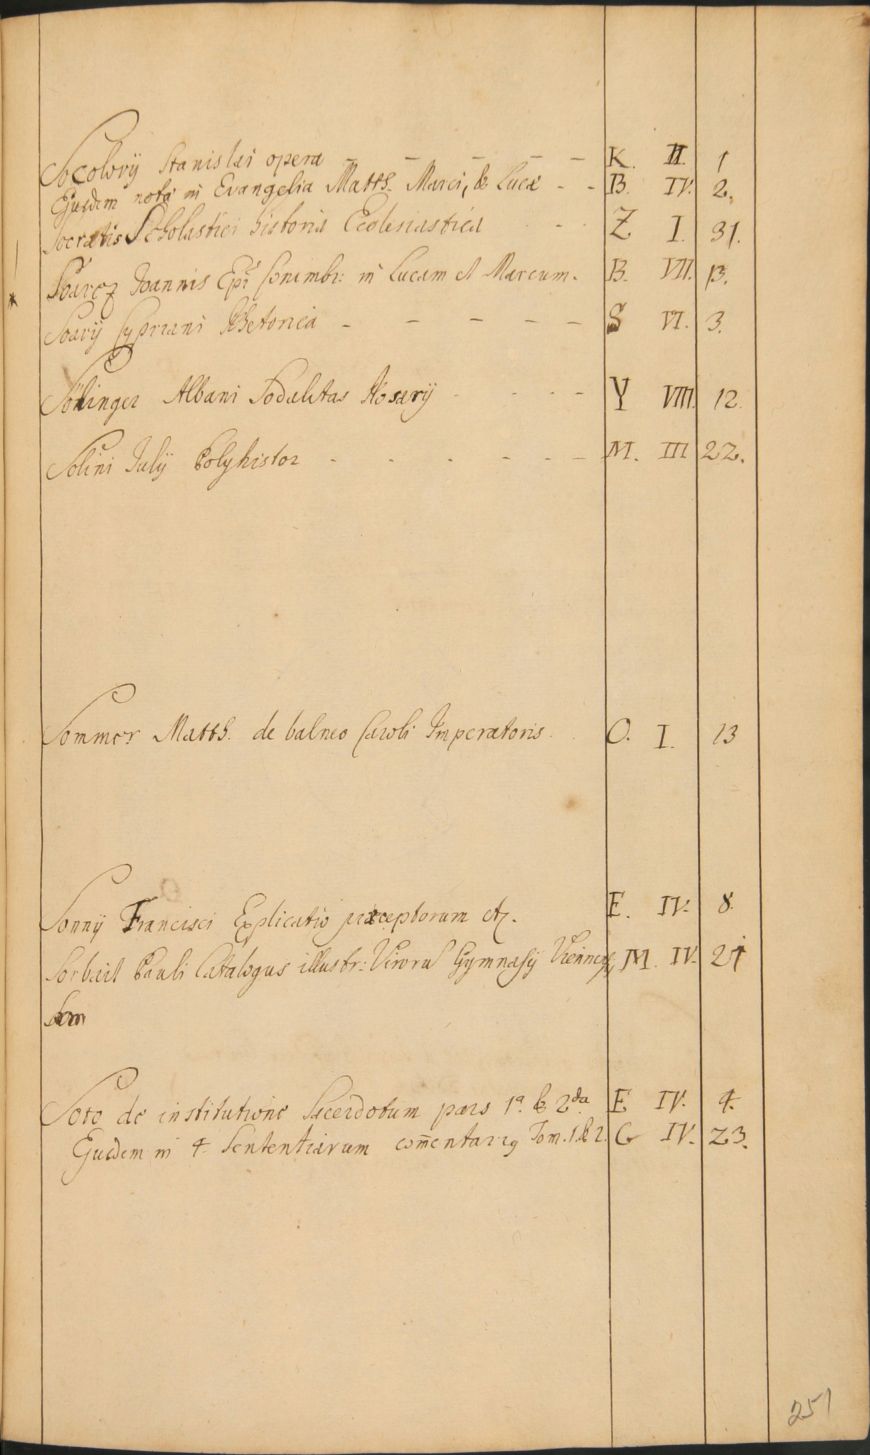 Socolovij Stanislai opera – – – – – K. II. 1
Ejusdem notæ in Evangelia Matth. Marci, & Lucæ – – B. IV. 2.
Socratis Scholastici historia Ecclesiastica Z I. 31.
Soarez Joannis Epi Conimbr: in Lucam et Marcum. B. VII. 13.
Soarij Cypriani Rhetorica – – – – – S VI. 3.
Albani Sodalitas Rosarij Y VIII. 12.
Solini Julij Polyhistor M. III 22.
Sommer Matth. de balneo Caroli Imperatoris. O. I. 13
Sonnij Francisci Explicatio præceptorum etc. E. IV. 8
Sorbait Pauli Catalogus illustr: Viroru Gymnasij M. IV.
Soto de institutione Sacerdotum pars 1a. & 2da E IV. 4.
Ejusdem in 4. Sententiarum Tom. 1. & 2. G IV. 23.
251